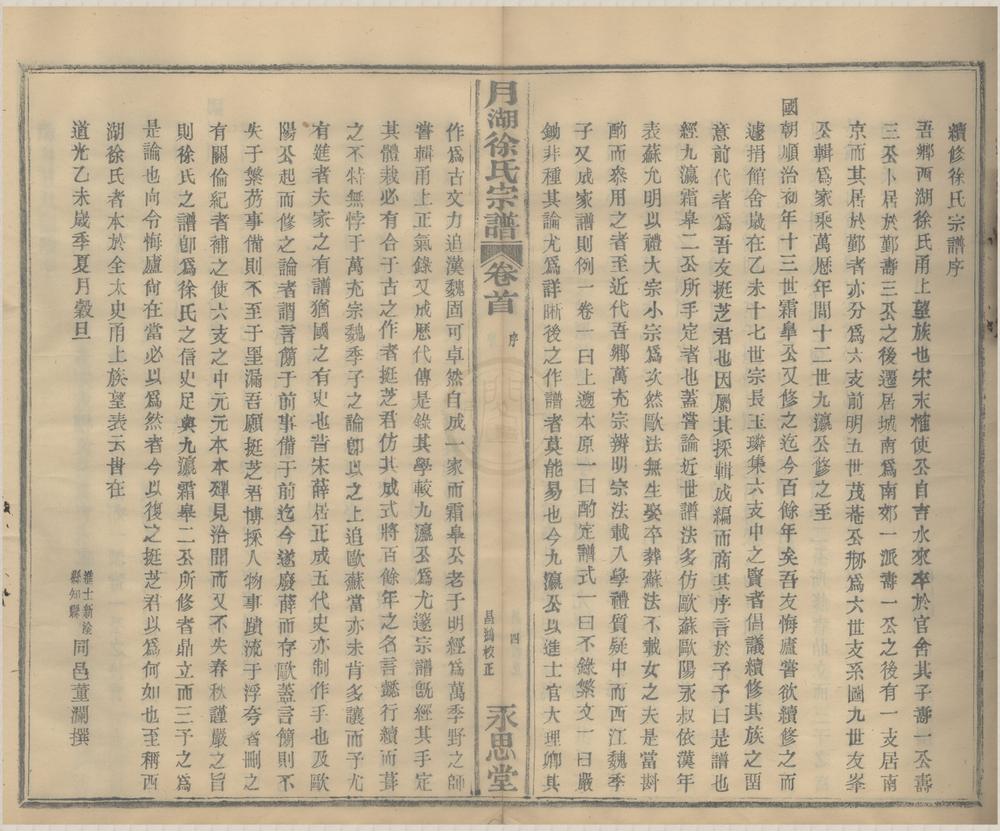 續修徐氏宗譜序
吾鄉西湖徐氏甬上望族也宋末榷使公自吉水來卒於官舍其子壽一公壽
三公卜居於鄞壽三公之後遷居城南為南郊一派壽一公之後有一支居南
京而其居於鄞者亦分為六支前明五世茂菴公刱為六世支系圖九世友峯
公輯為家乘萬歷年間十二世九瀛公修之至
國朝順治初年十三世霜皋公又修之迄今百餘年矣吾友悔廬嘗欲續修之而
遽捐館舍歲在乙未十七世宗長玉璘集六支中之賢者倡議續修其族之畱
意前代者為吾友挺芝君也因屬其採輯成編而商其序言於予予曰是譜也
經九瀛霜皋二公所手定者也蓋嘗論近世譜法多仿歐蘇歐陽永叔依漢年
表蘇允明以禮大宗小宗為次然歐法無生娶卒葬蘇法不載女之夫是當斟
酌而叅用之者至近代吾鄉萬充宗辨明宗法載入學禮質疑中而西江魏季
子又成家譜則例一卷一曰上遡本原一曰酌定譜式一曰不錄繁文一曰嚴
鋤非種其論尤為詳晰後之作譜者莫能易也今九瀛公以進士官大理卿其
月湖徐氏宗譜 卷首 序 四 昌鴻校正 永思堂
作為古文力追漢魏固可卓然自成一家而霜皋公老于明經為萬季野之師
嘗輯甬上正氣錄又成歷代傳是錄其學較九瀛公為尤邃宗譜旣經其手定
其體裁必有合于古之作者挺芝君仿其成式將百餘年之名言懿行續而葺
之不特無悖于萬充宗魏季子之論卽以之上追歐蘇當亦未肯多讓而予尤
有進者夫家之有譜猶國之有史也昔宋薛居正成五代史亦制作手也及歐
陽公起而修之論者謂言簡于前事備于前迄今遂廢薛而存歐蓋言簡則不
失于繁蕪事備則不至于罣漏吾願挺芝君博採人物事蹟流于浮夸者刪之
有關倫紀者補之使六支之中元元本本殫見洽聞而又不失春秋謹嚴之旨
則徐氏之譜卽為徐氏之信史足與九瀛霜皋二公所修者鼎立而三予之為
是論也向令悔廬尚在當必以為然者今以復之挺芝君以為何如也至稱西
湖徐氏者本於全太史甬上族望表云昔在
道光乙未歲季夏月穀旦
進士新淦縣知縣同邑董瀾撰